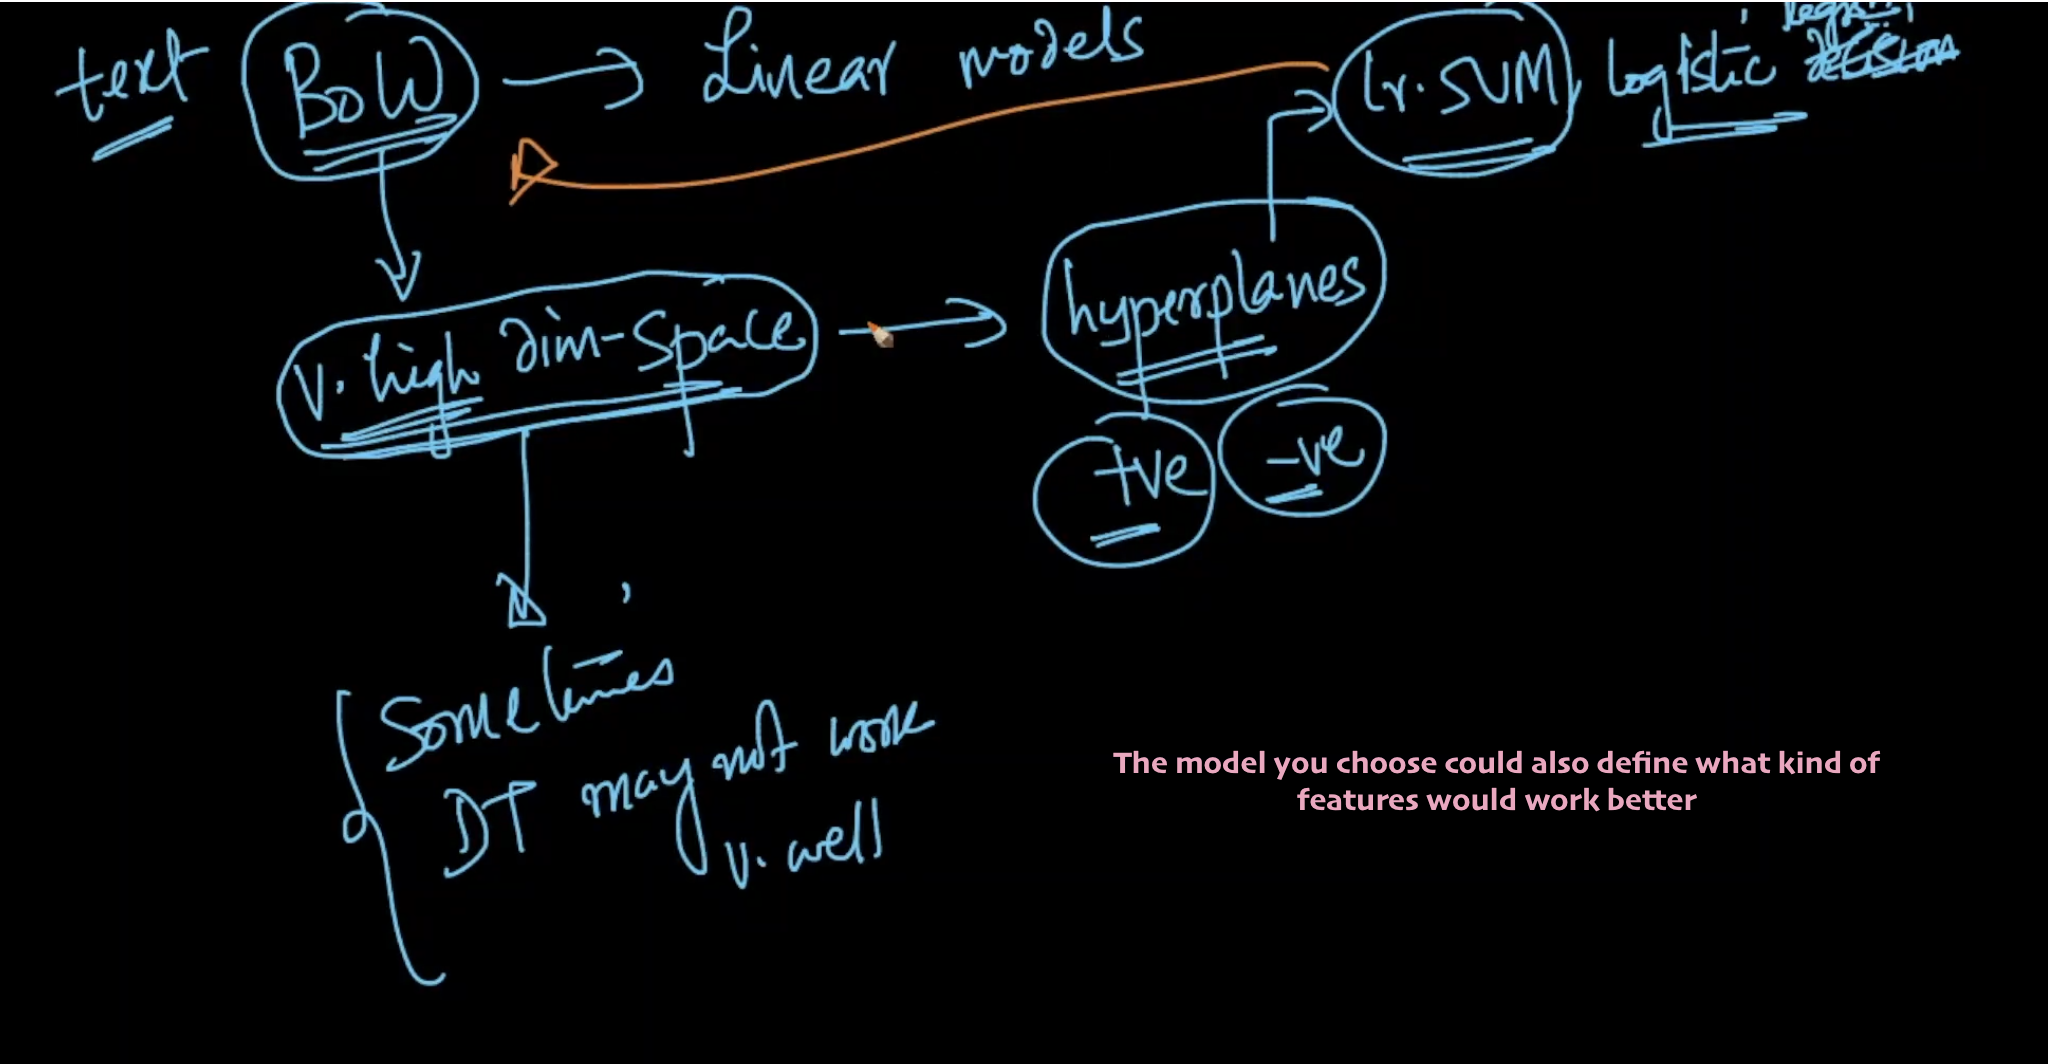 text BoW → Linear models lr. SVM, logistic
v. high dim-space → hyperplanes
+ve -ve
Sometimes
DT may not work
v. well
The model you choose could also define what kind of
features would work better